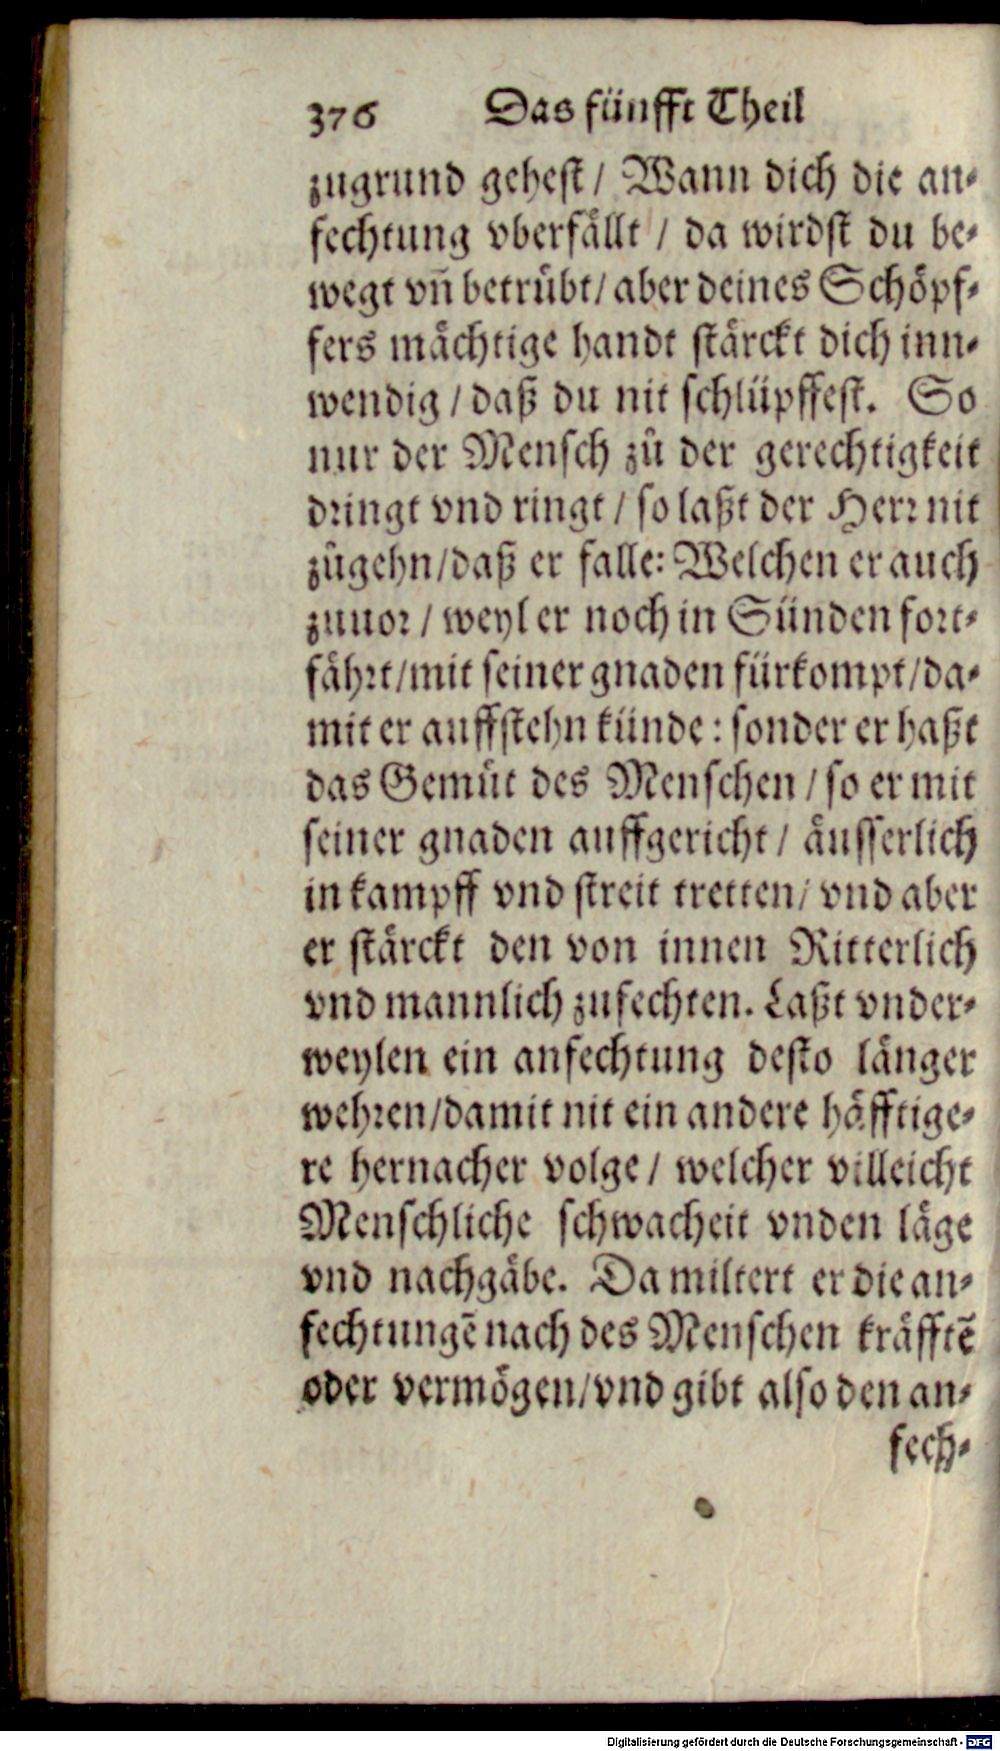 376 Das fünfft Theil
zugrund gehest / Wann dich die an⸗
fechtung vberfällt / da wirdst du be⸗
wegt vñ betrübt / aber deines Schöpf⸗
fers mächtige handt stärckt dich inn⸗
wendig / daß du nit schlüpffest. So
nur der Mensch zů der gerechtigkeit
dringt vnd ringt / so laßt der Herr nit
zůgehn / daß er falle: Welchen er auch
zuuor / weyl er noch in Sünden fort⸗
fährt / mit seiner gnaden fürkompt / da⸗
mit er auffstehn künde: sonder er haßt
das Gemůt des Menschen / so er mit
seiner gnaden auffgericht / äusserlich
in kampff vnd streit tretten / vnd aber
er stärckt den von innen Ritterlich
vnd mannlich zufechten. Laßt vnder⸗
weylen ein anfechtung desto länger
wehren / damit nit ein andere häfftige⸗
re hernacher volge / welcher villeicht
Menschliche schwacheit vnden läge
vnd nachgäbe. Da miltert er die an⸗
fechtungē nach des Menschen kräfftē
oder vermögen / vnd gibt also den an⸗
fech⸗
Digitalisierung gefördert durch die Deutsche Forschungsgemeinschaft - DFG